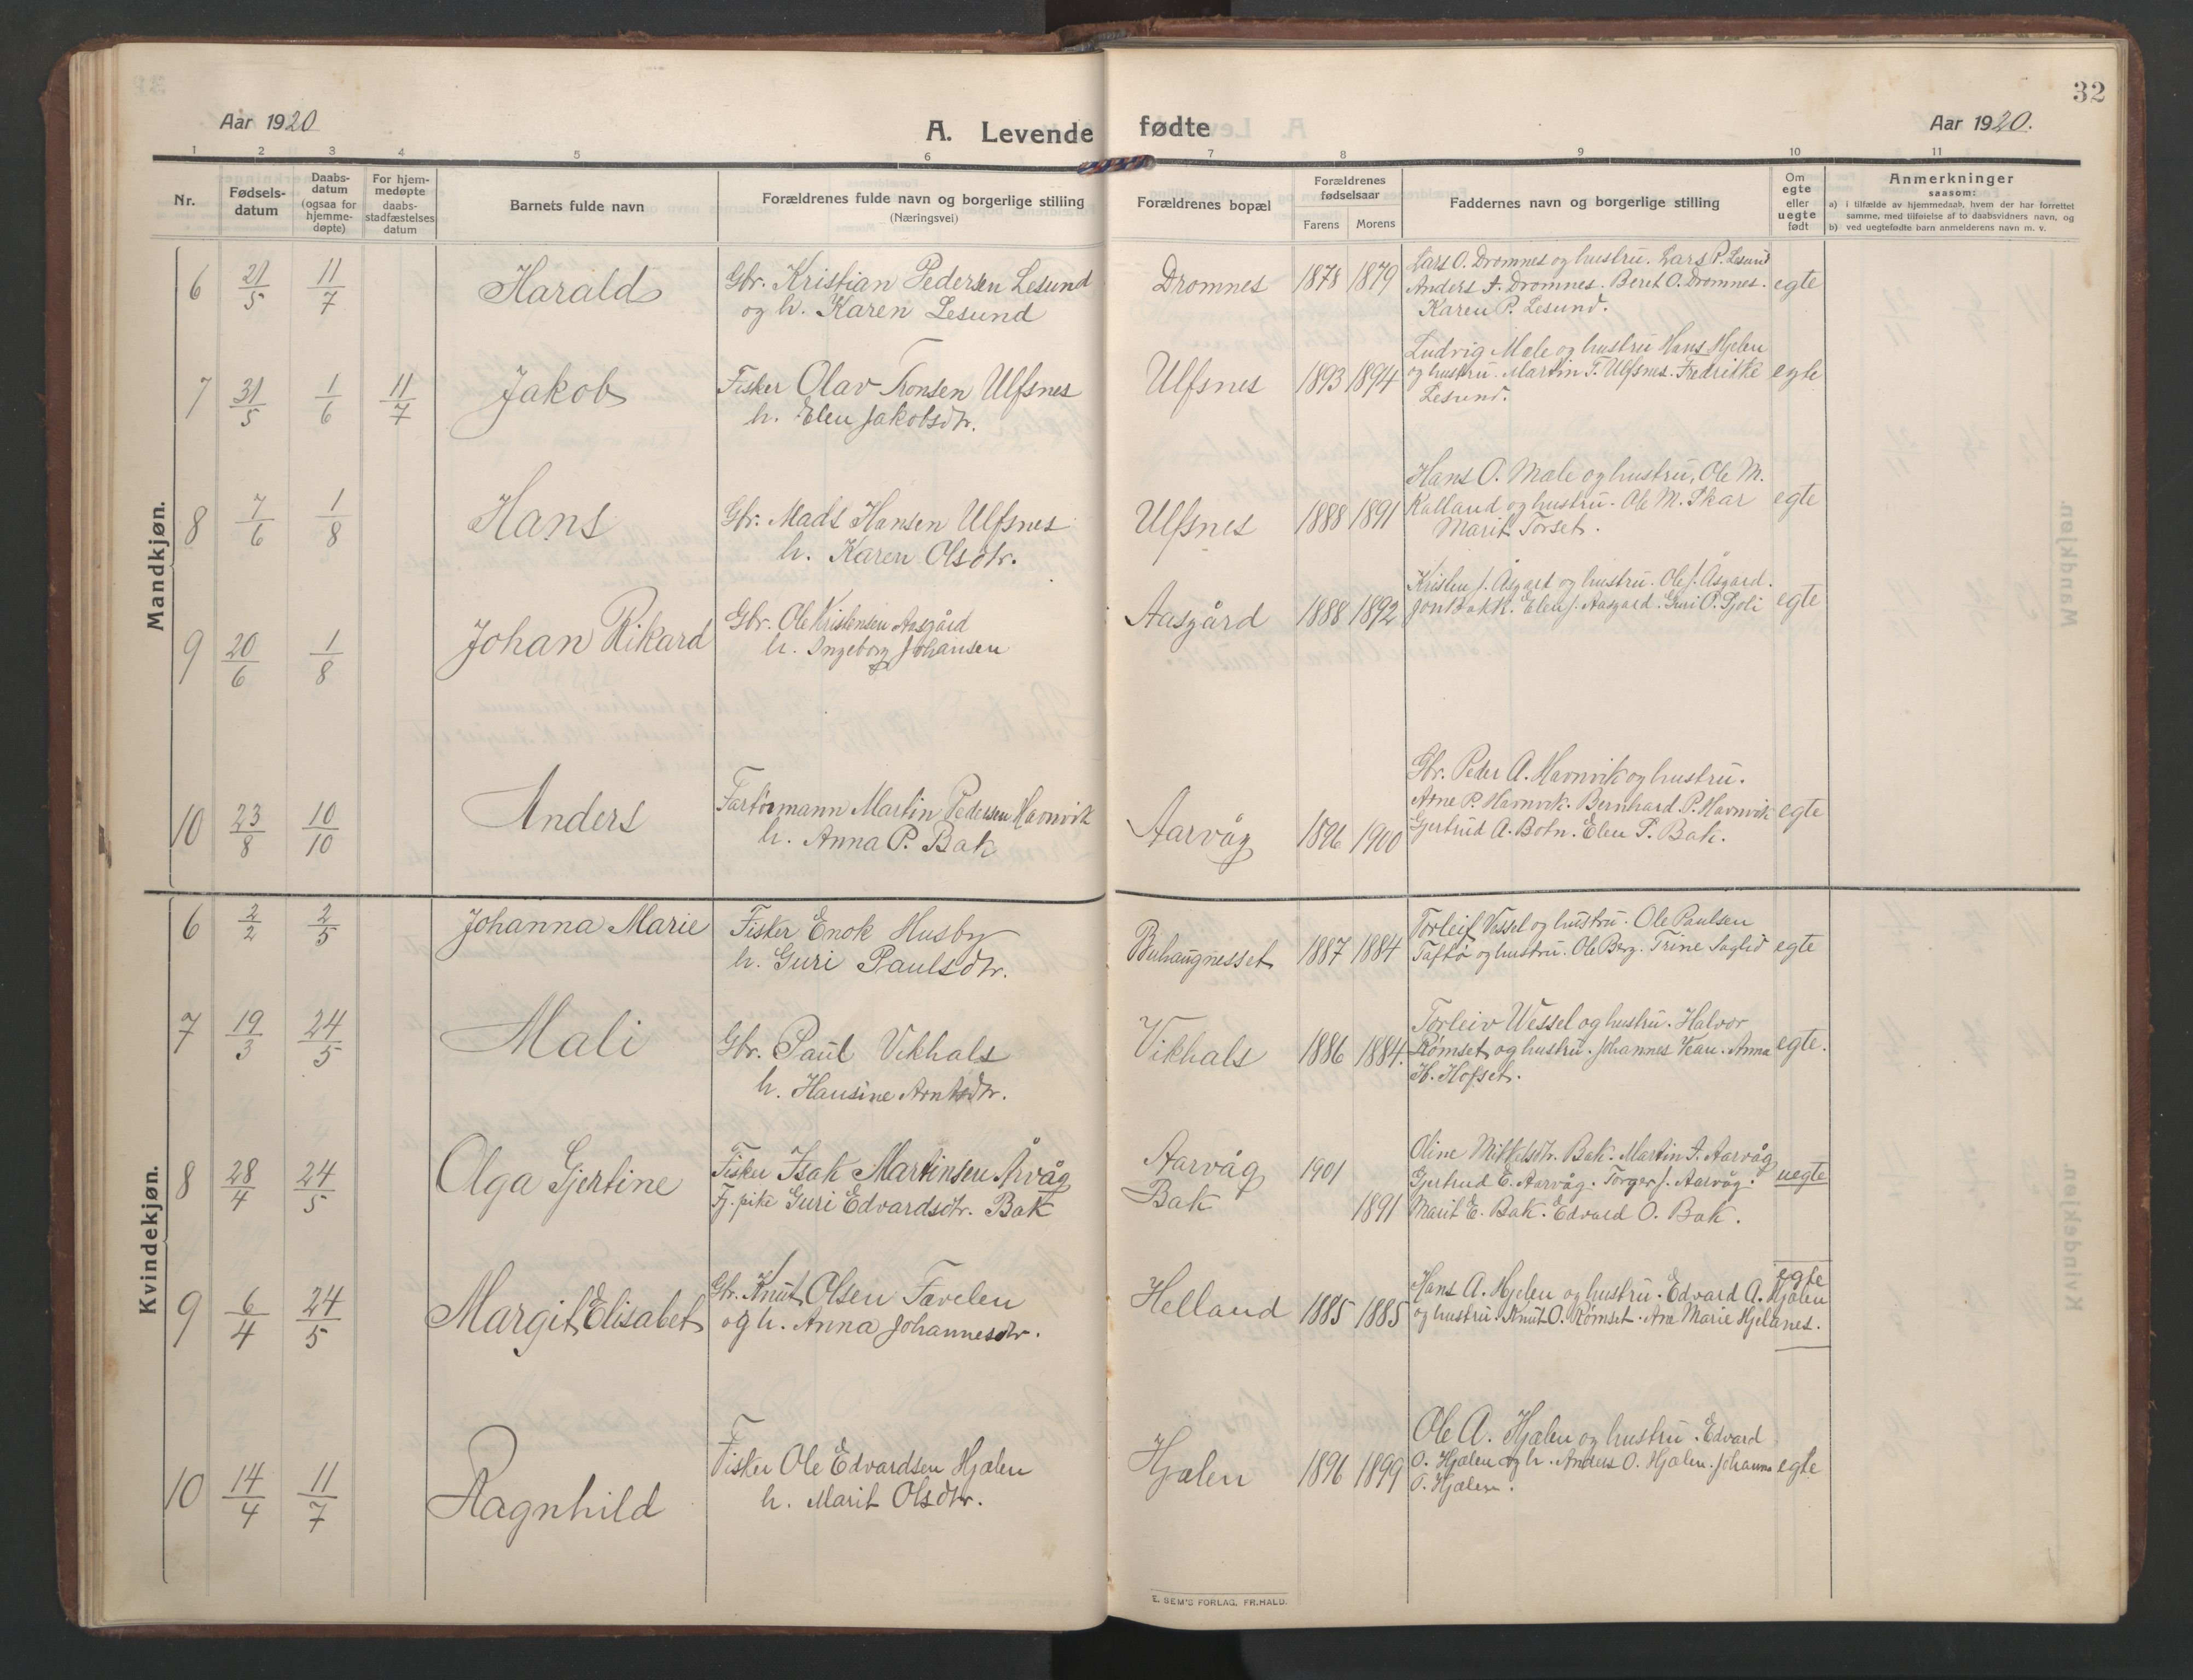 32
Aar 1920
A. Levende fødte
Aar 1920.
1 2 3 4 5 6 7 8 9 10 11
Nr.
Fødsels-
datum
Daabs-
datum
(ogsaa for
hjemme-
døpte)
For hjem-
medøpte
daabs-
stadfæstelses
datum
Barnets fulde navn
Forældrenes fulde navn og borgerlige stilling
(Næringsvei)
Forældrenes bopæl
Forældrenes
fødselsaar
Farens Morens
Faddernes navn og borgerlige stilling
Om
egte
eller
uegte
født
Anmerkninger
saasom:
a) i tilfælde av hjemmedaab, hvem der har forrettet
samme, med tilføielse af to daabsvidners navn, og
b) ved uegtefødte barn anmelderens navn m. v.
Mandkjøn.
6 21/5 11/7 Harald
Gbr. Kristian Pedersen Lesund
og h. Karen Lesund
Dromnes 1878 1879
Lars O. Dromnes og hustru. Lars P. Lesund
Anders A. Dromnes. Beret O. Dromnes.
Karen P. Lesund.
egte
7 31/5 1/6 11/7 Jakob
Fisker Olav Tronsen Ulfsnes
h. Elen Jakobsdtr.
Ulfsnes 1893 1894
Ludvig Mele og hustru Hans Hjelen
og hustru. Martin T. Ulfsnes. Fredrikke
Lesund.
egte
8 7/6 1/8 Hans
Gbr. Mads Hansen Ulfsnes
h. Karen Olsdtr.
Ulfsnes 1888 1891
Hans O. Mæle og hustru, Ole M.
Kalland og hustru. Ole M. Skar
Marit Torset.
egte
9 20/6 1/8 Johan Rikard
Gbr. Ole Kristensen Aasgård
h. Ingeborg Johansen
Aasgård 1888 1892
Kristen J. Åsgard og hustru. Ole J. Åsgard.
Jon Bakk. Elen J. Aasgard. Guri O.
egte
10 23/8 10/10 Anders
Fartøimann Martin Pedersen Havnvik
h. Anna P. Bak
Aarvåg 1896 1900
Gbr. Peder A. Havnvik og hustru.
Arne P. Havnvik. Bernhard P. Havnvik
Gjertrud A. Botn. Elen P. Bak.
egte
Kvindekjøn.
6 2/2 2/5 Johanna Marie
Fisker Enok Husby
h. Guri Paulsdtr.
Buhaugnesset 1887 1884
Torleif Vessel og hustru. Ole Paulsen
Taftø og hustru. Ole Berg. Trine Saglid
egte
7 19/3 24/5 Mali
Gbr. Paul Vikhals
h. Hansine Arntsdtr.
Vikhals 1886 1884.
Torleiv Wessel og hustru. Halvor
Rømset og hustru. Johannes Vean. Anna
H. Hofset.
egte.
8 28/4 24/5 Olga Gjertine
Fisker Isak Martinsen Årvåg
Tj. pike Guri Edvardsdtr. Bak
Aarvåg 1901
Bak 1891
Oline Mikkelsdtr. Bak. Martin A. Aarvåg
Gjertrud E. Aarvåg. Torger J. Aarvåg.
Marit E. Bak. Edvard O. Bak.
uegte
9 6/4 24/5 Margit Elisabet
Gbr. Knut Olsen Tavelen
og h. Anna Johannesdtr.
Helland 1885 1885
Hans A. Hjelen og hustru. Edvard A. Hjælen
og hustru. Knut O. Rømset. Ane Marie Hjelanes.
egte
10 14/4 11/7 Ragnhild
Fisker Ole Edvardsen Hjælen
h. Marit Olsdtr.
Hjælen 1896 1899
Ole A. Hjælen og hustru. Edvard
O. Hjælen og h. Anders O. Hjælen. Johanna
O. Hjælen.
egte
E. SEM'S FORLAG, FR.HALD.